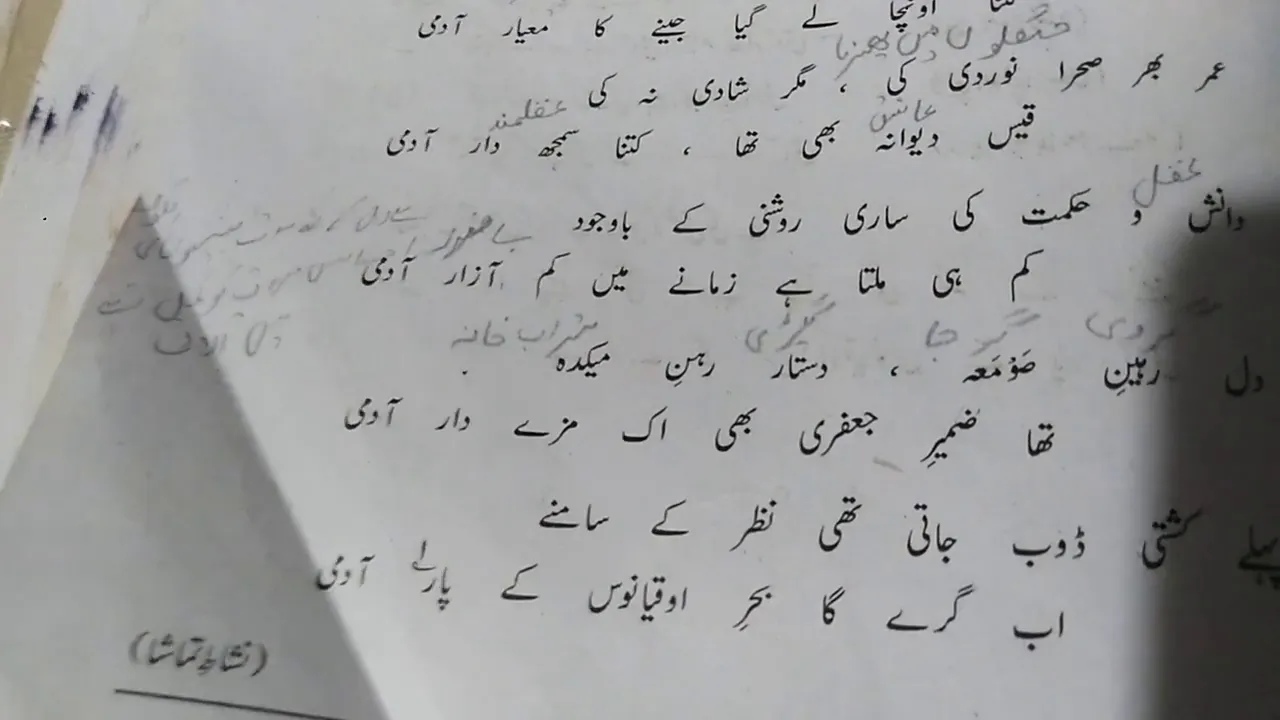 کتنا اونچا لے گیا جینے کا معیار آدمی
جنگلوں میں پھرنا
عمر بھر صحرا نوردی کی ، مگر شادی نہ کی
عاشق عقلمند
قیس دیوانہ بھی تھا ، کتنا سمجھ دار آدمی
عقل
دانش و حکمت کی ساری روشنی کے باوجود
بے ضرر
کم ہی ملتا ہے زمانے میں کم آزار آدمی
گروی گرجا پگڑی شراب خانہ
دل رہینِ صَوْمَعہ ، دستار رہنِ میکدہ
تھا ضمیرِ جعفری بھی اک مزے دار آدمی
پہلے کشتی ڈوب جاتی تھی نظر کے سامنے
اب گرے گا بحرِ اوقیانوس کے پار آدمی
(نشاطِ تماشا)